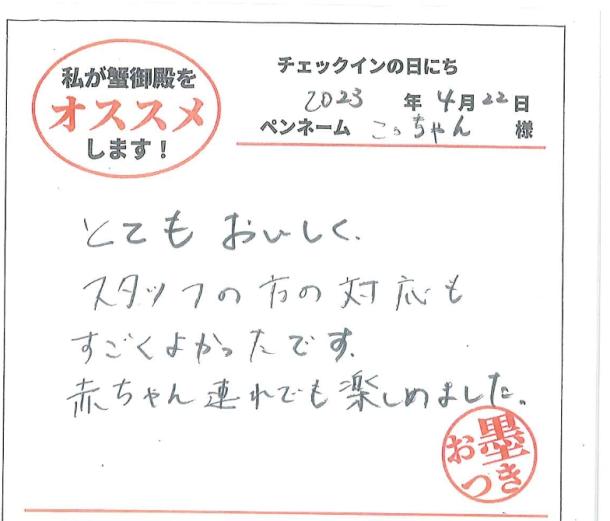 私が蟹御殿を
オススメ
します!
チェックインの日にち
2023 年 4月 22日
ペンネーム こっちゃん 様
とてもおいしく、
スタッフの方の対応も
すごくよかったです。
赤ちゃん連れでも楽しめました。
お墨つき